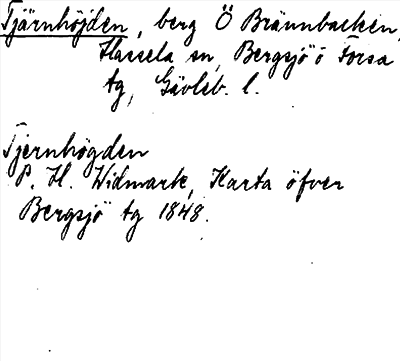 Tjärnhöjden, berg Ö Brännbacken,
Hassela sn, Bergsjö o Forsa
tg, Gävleb. l.
Tjernhögden
P. H. Widmark, Karta öfver
Bergsjö tg 1848.